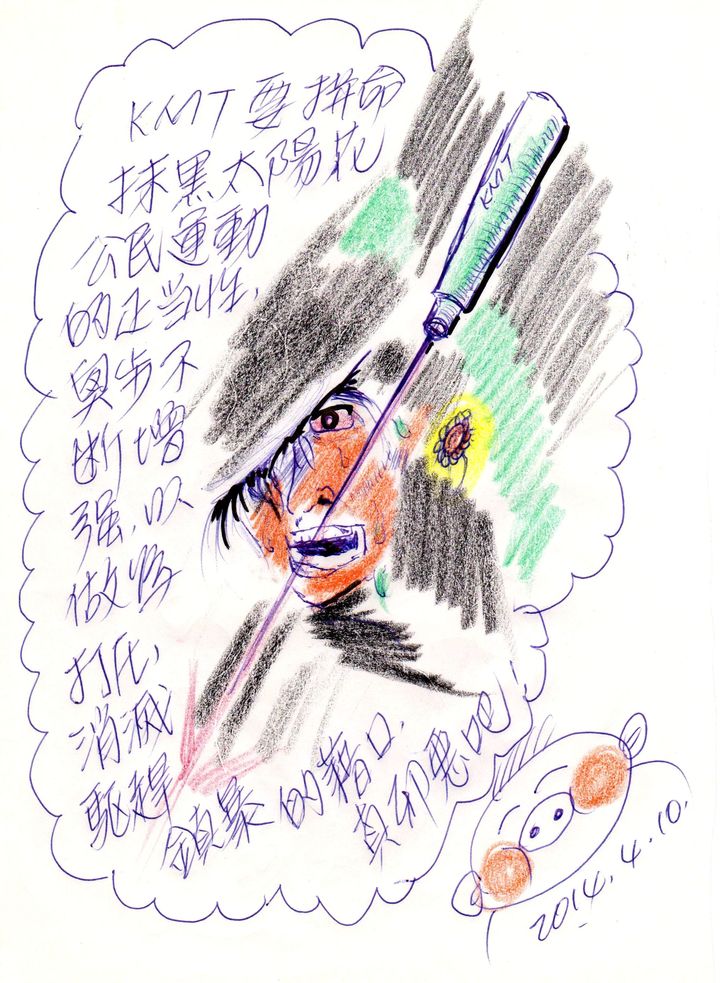 KMT 要拼命
抹黑太陽花
公民運動
的正当性,
奧步不
断增
强,以
做為
消滅
駆趕
鎮暴的藉口.
真邪悪吧!
KMT
2014.4.10.